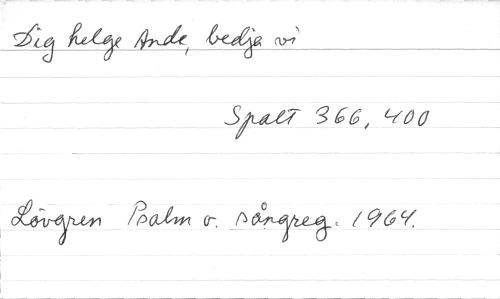 Dig helge Ande, bedja vi
Spalt 366, 400
Lövgren Psalm o. sångreg. 1964.